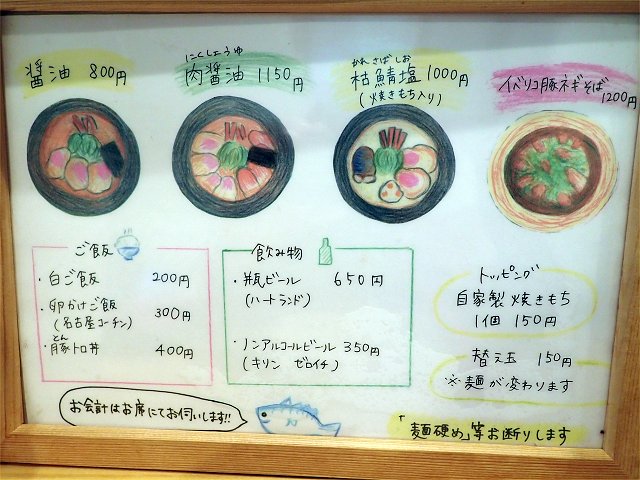 醤油 800円
にくしょうゆ
肉醤油 1150円
かれ さば しお
枯鯖塩 1000円
(焼きもち入り)
イベリコ豚ネギそば
1200円
ご飯
・白ご飯 200円
・卵かけご飯 300円
(名古屋コーチン)
とん
・豚トロ丼 400円
飲み物
・瓶ビール 650円
(ハートランド)
・ノンアルコールビール 350円
(キリン ゼロイチ)
トッピング
自家製焼きもち
1個 150円
替え玉 150円
※麺が変わります
お会計はお席にてお伺いします!!
「麺硬め」等お断りします